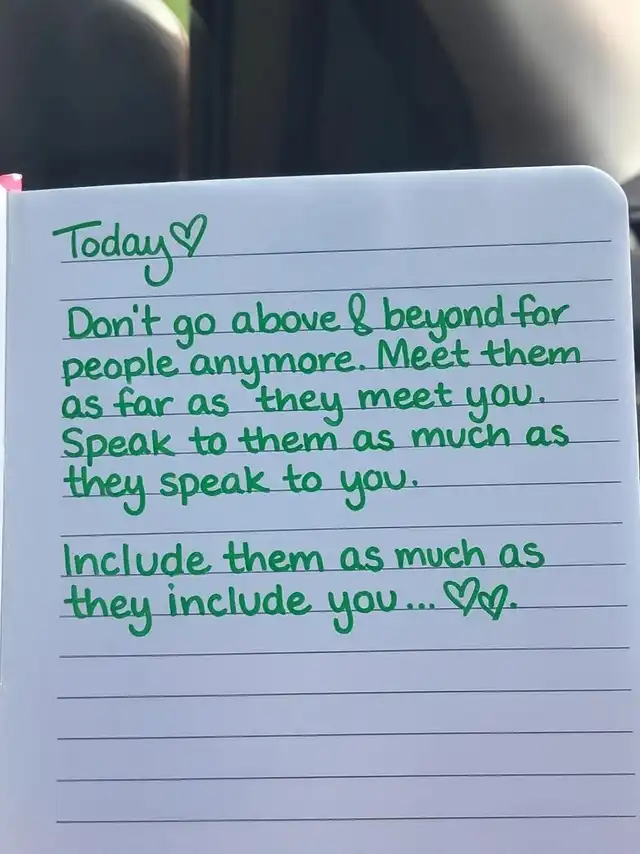 Today♡
Don't go above & beyond for
people anymore. Meet them
as far as they meet you.
Speak to them as much as
they speak to you.
Include them as much as
they include you... ♡♡.